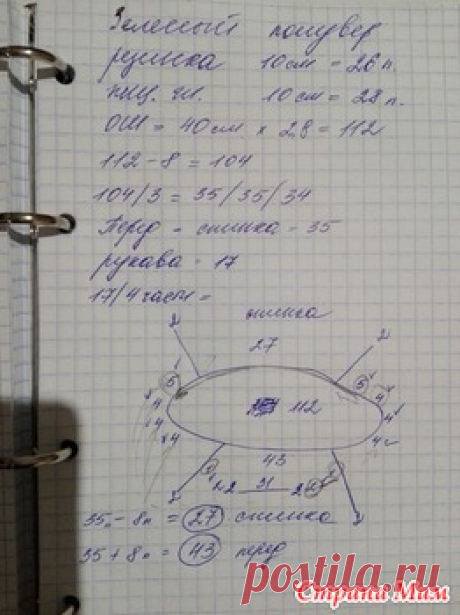 Зеленый пуловер
резинка 10 см = 26 п.
лиц. гл. 10 см = 28 п.
ОШ = 40 см × 2,8 = 112
112 - 8 = 104
104/3 = 35/35/34
Перед - спинка - 35
рукава - 17
17/4 части =
спинка
2 27 2
5 5
4 4
4 112 4
4 4
43
2 31 2
2 2
35п - 8п = 27 спинка
35 + 8п = 43 перед
Страна Мам
postila.ru